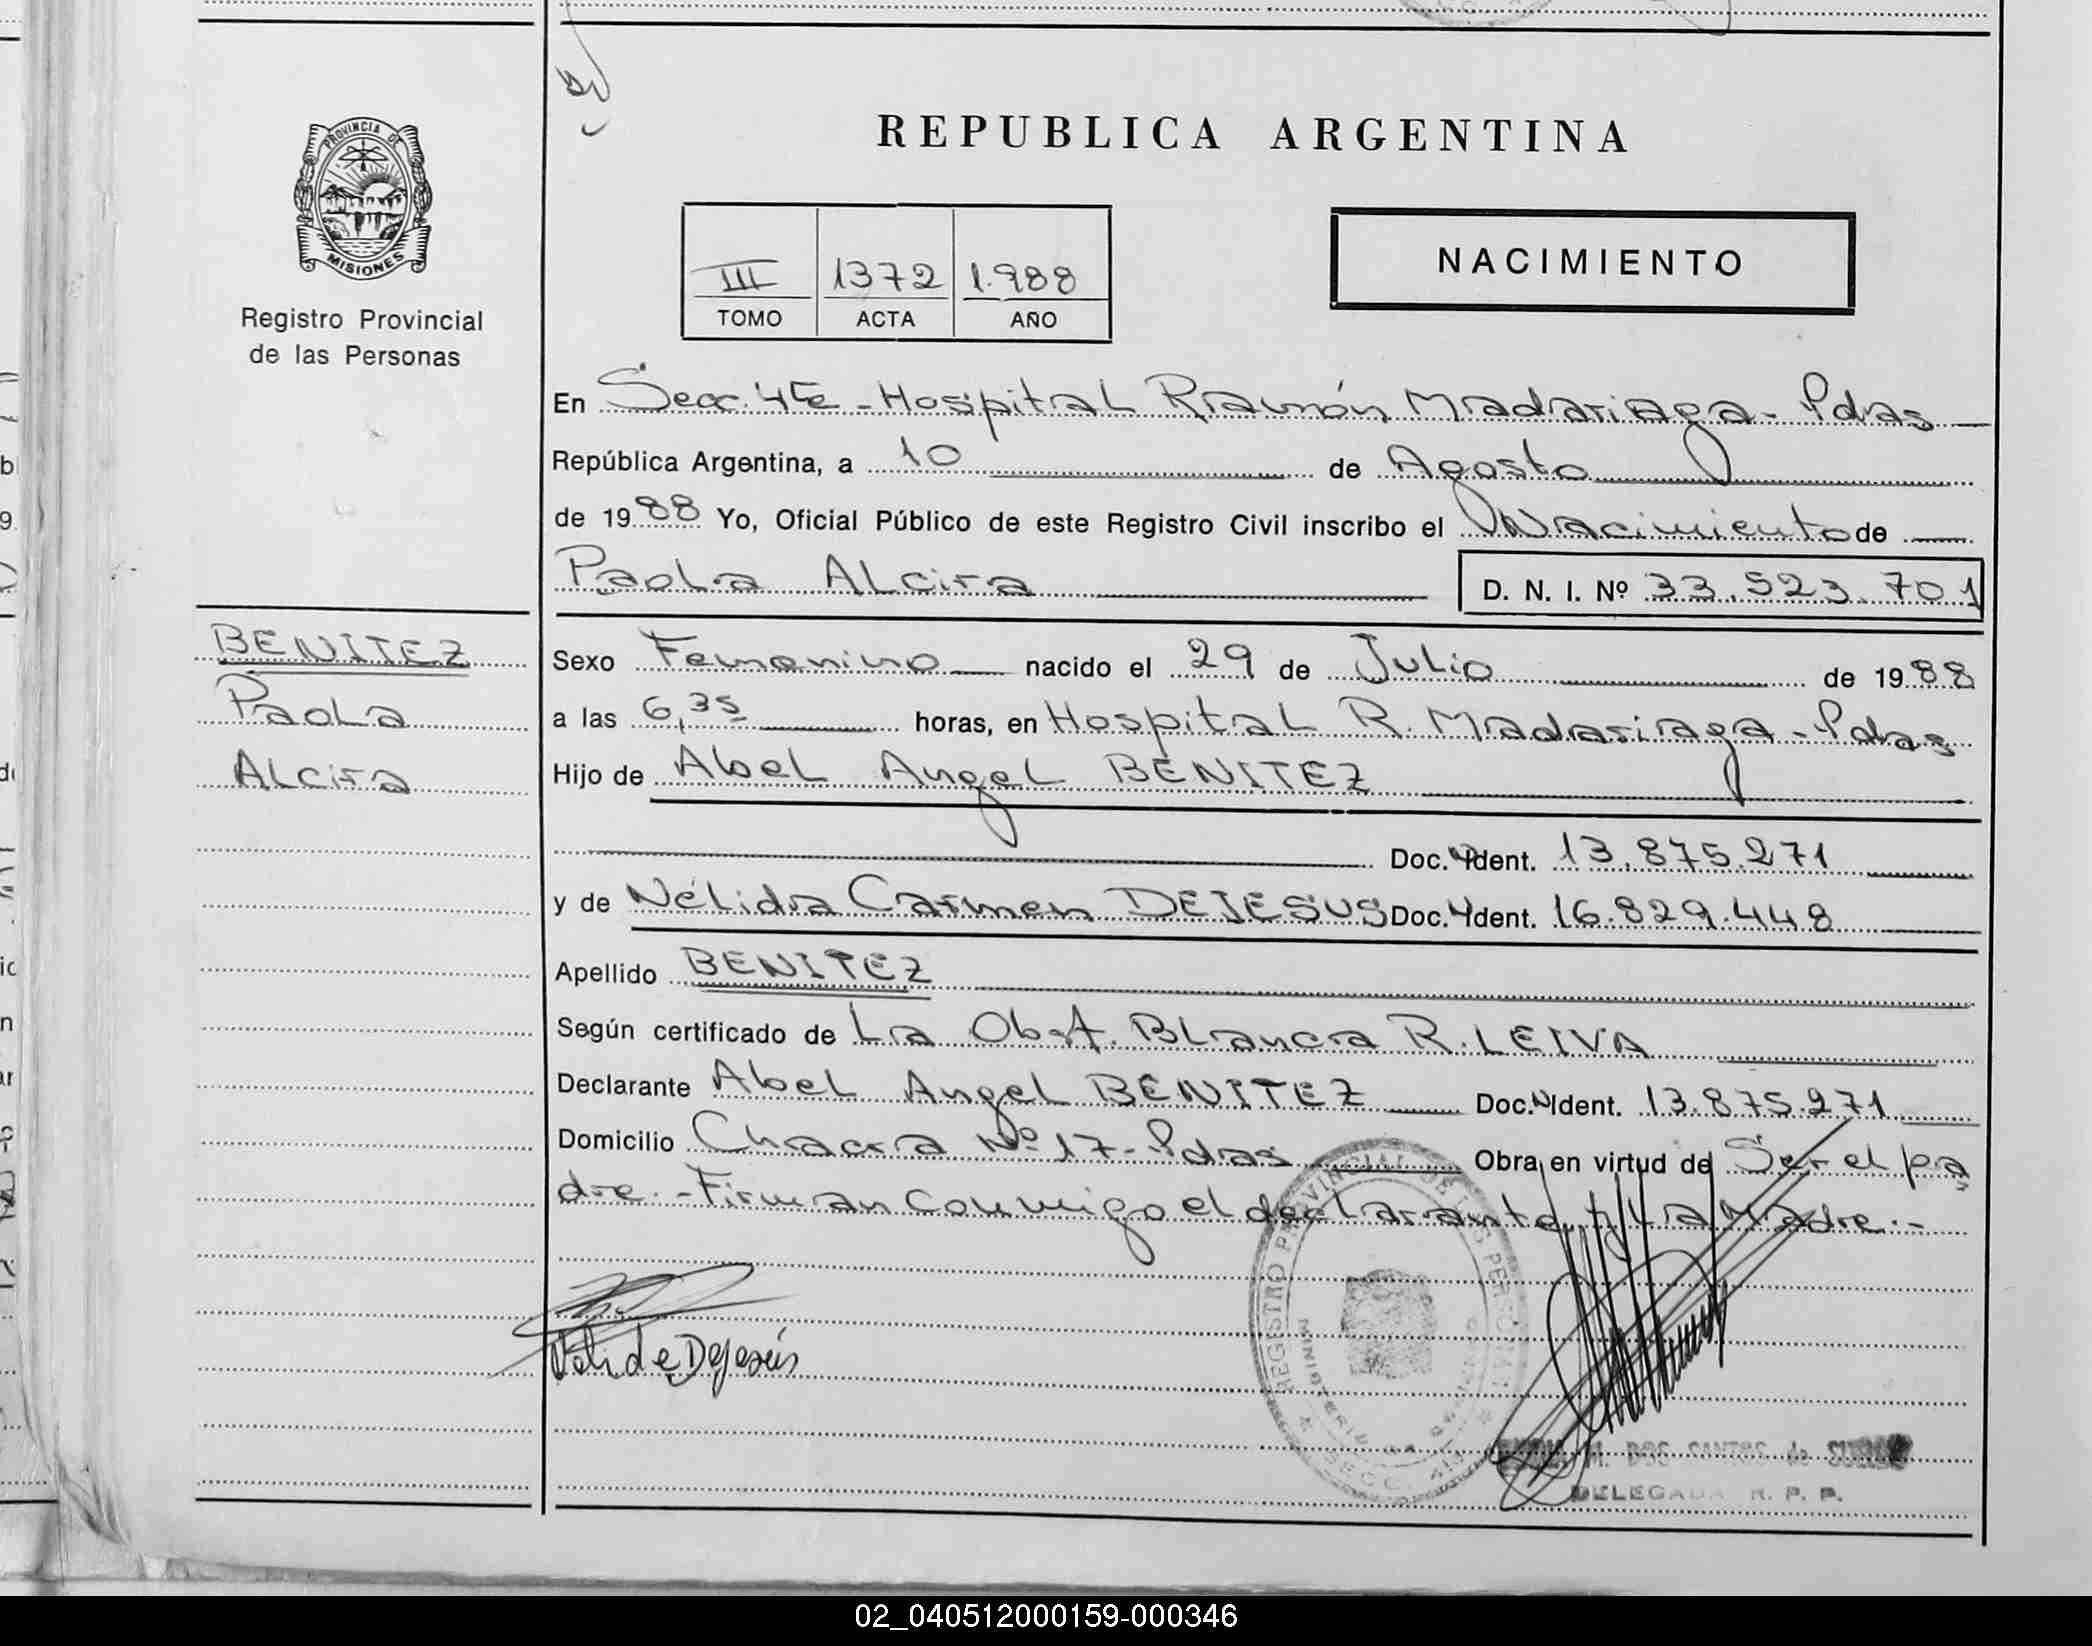 REPUBLICA ARGENTINA
PROVINCIA DE
MISIONES
Registro Provincial
de las Personas
III 1372 1.988
TOMO ACTA AÑO
NACIMIENTO
En Secc. 4te - Hospital Ramón Madariaga - Pdas
República Argentina, a 10 de Agosto
de 1988 Yo, Oficial Público de este Registro Civil inscribo el Nacimiento de
Paola Alcira D. N. I. Nº 33.523.701
BENITEZ
Paola
Alcira
Sexo Femenino nacido el 29 de Julio de 1988
a las 6,35 horas, en Hospital R. Madariaga - Pdas
Hijo de Abel Angel BENITEZ
Doc. Ident. 13.875.271
y de Nélida Carmen DEJESUS Doc. Ident. 16.829.448
Apellido BENITEZ
Según certificado de La Obst. Blanca R. LEIVA
Declarante Abel Angel BENITEZ Doc. Ident. 13.875.271
Domicilio Chacra Nº 17 - Pdas Obra en virtud de Ser el pa
dre. - Firman conmigo el declarante y La Madre. -
Nelida Dejesús
REGISTRO PROVINCIAL DE LAS PERSONAS
M. DOS SANTOS de
DELEGADA R. P. P.
02_040512000159-000346